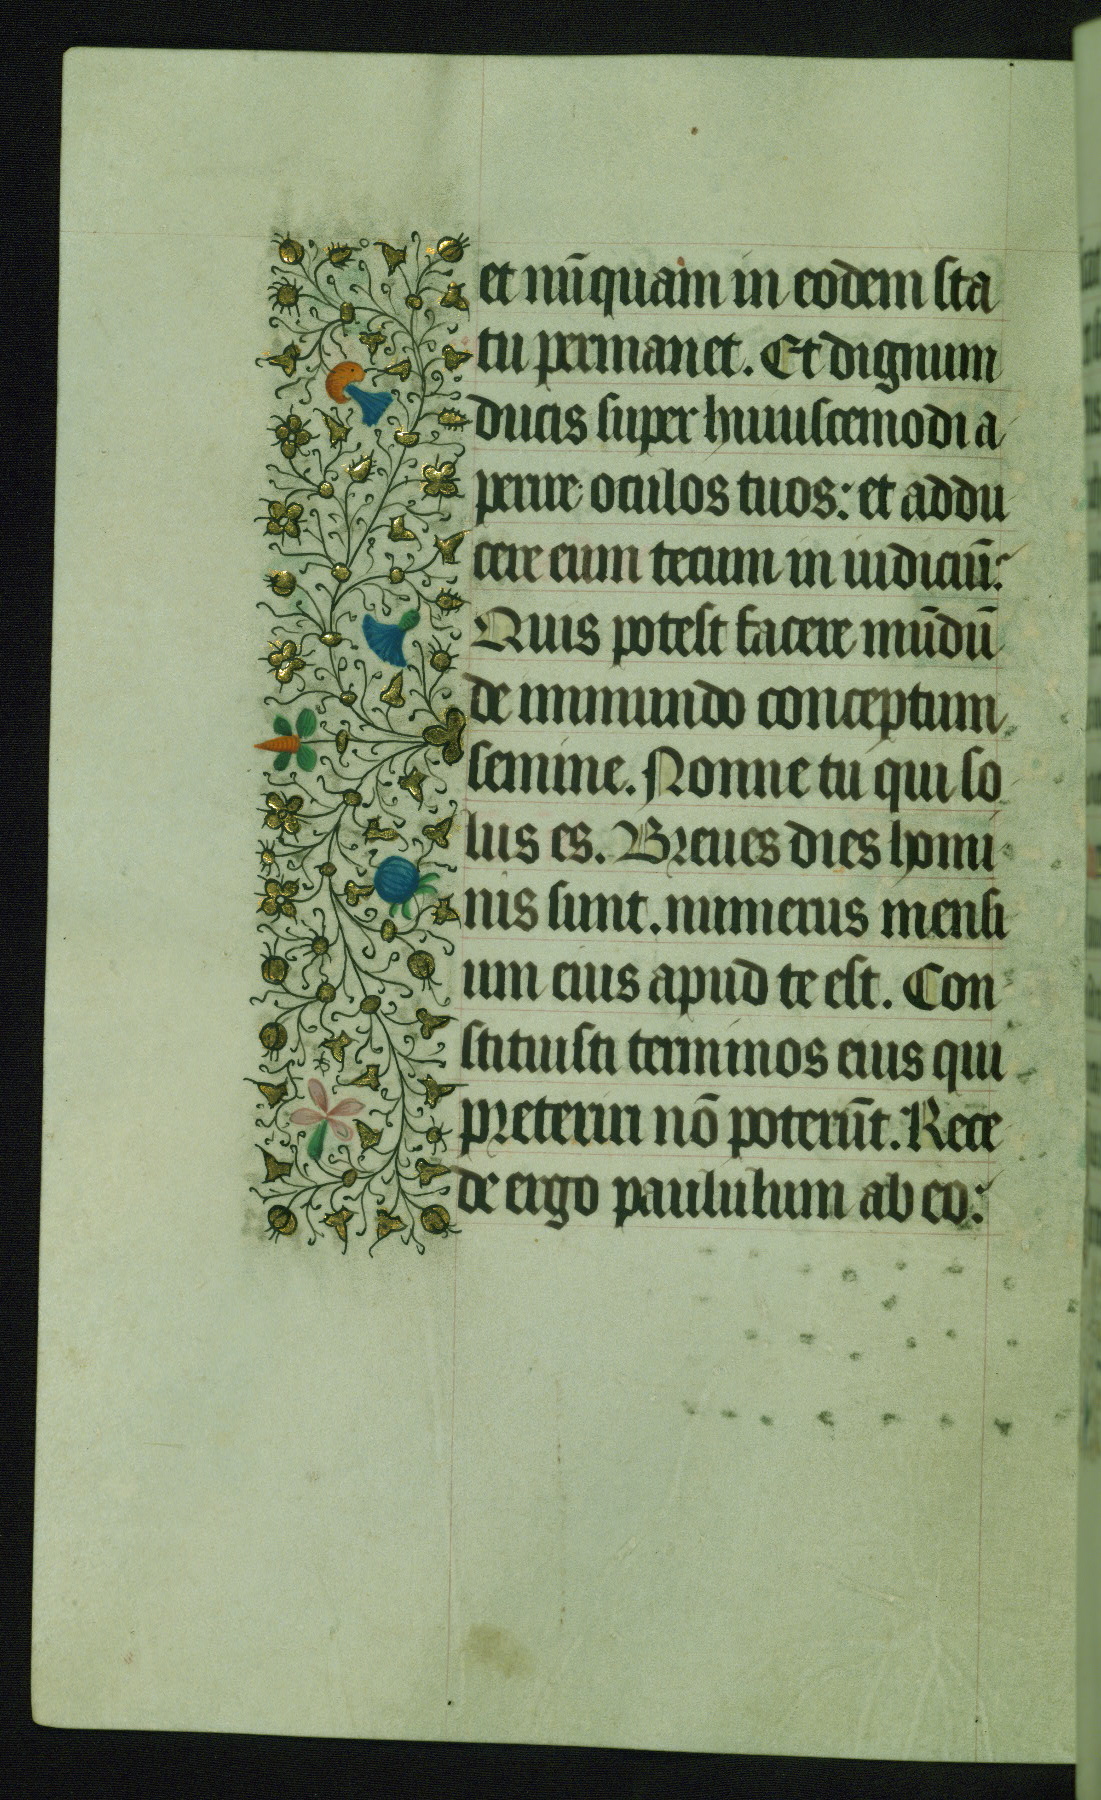 et nūquam in eodem sta
tu permanet. Et dignum
ducis super huiuscemodi a
perire oculos tuos: et addu
cere eum tecum in iudiciū:
Quis potest facere mūdū
de immundo conceptum
semine. Nonne tu qui so
lus es. Breues dies homi
nis sunt. numerus mensi
um eius apud te est. Con
stituisti terminos eius qui
preteriri nō poterūt. Rece
de ergo paululum ab eo: